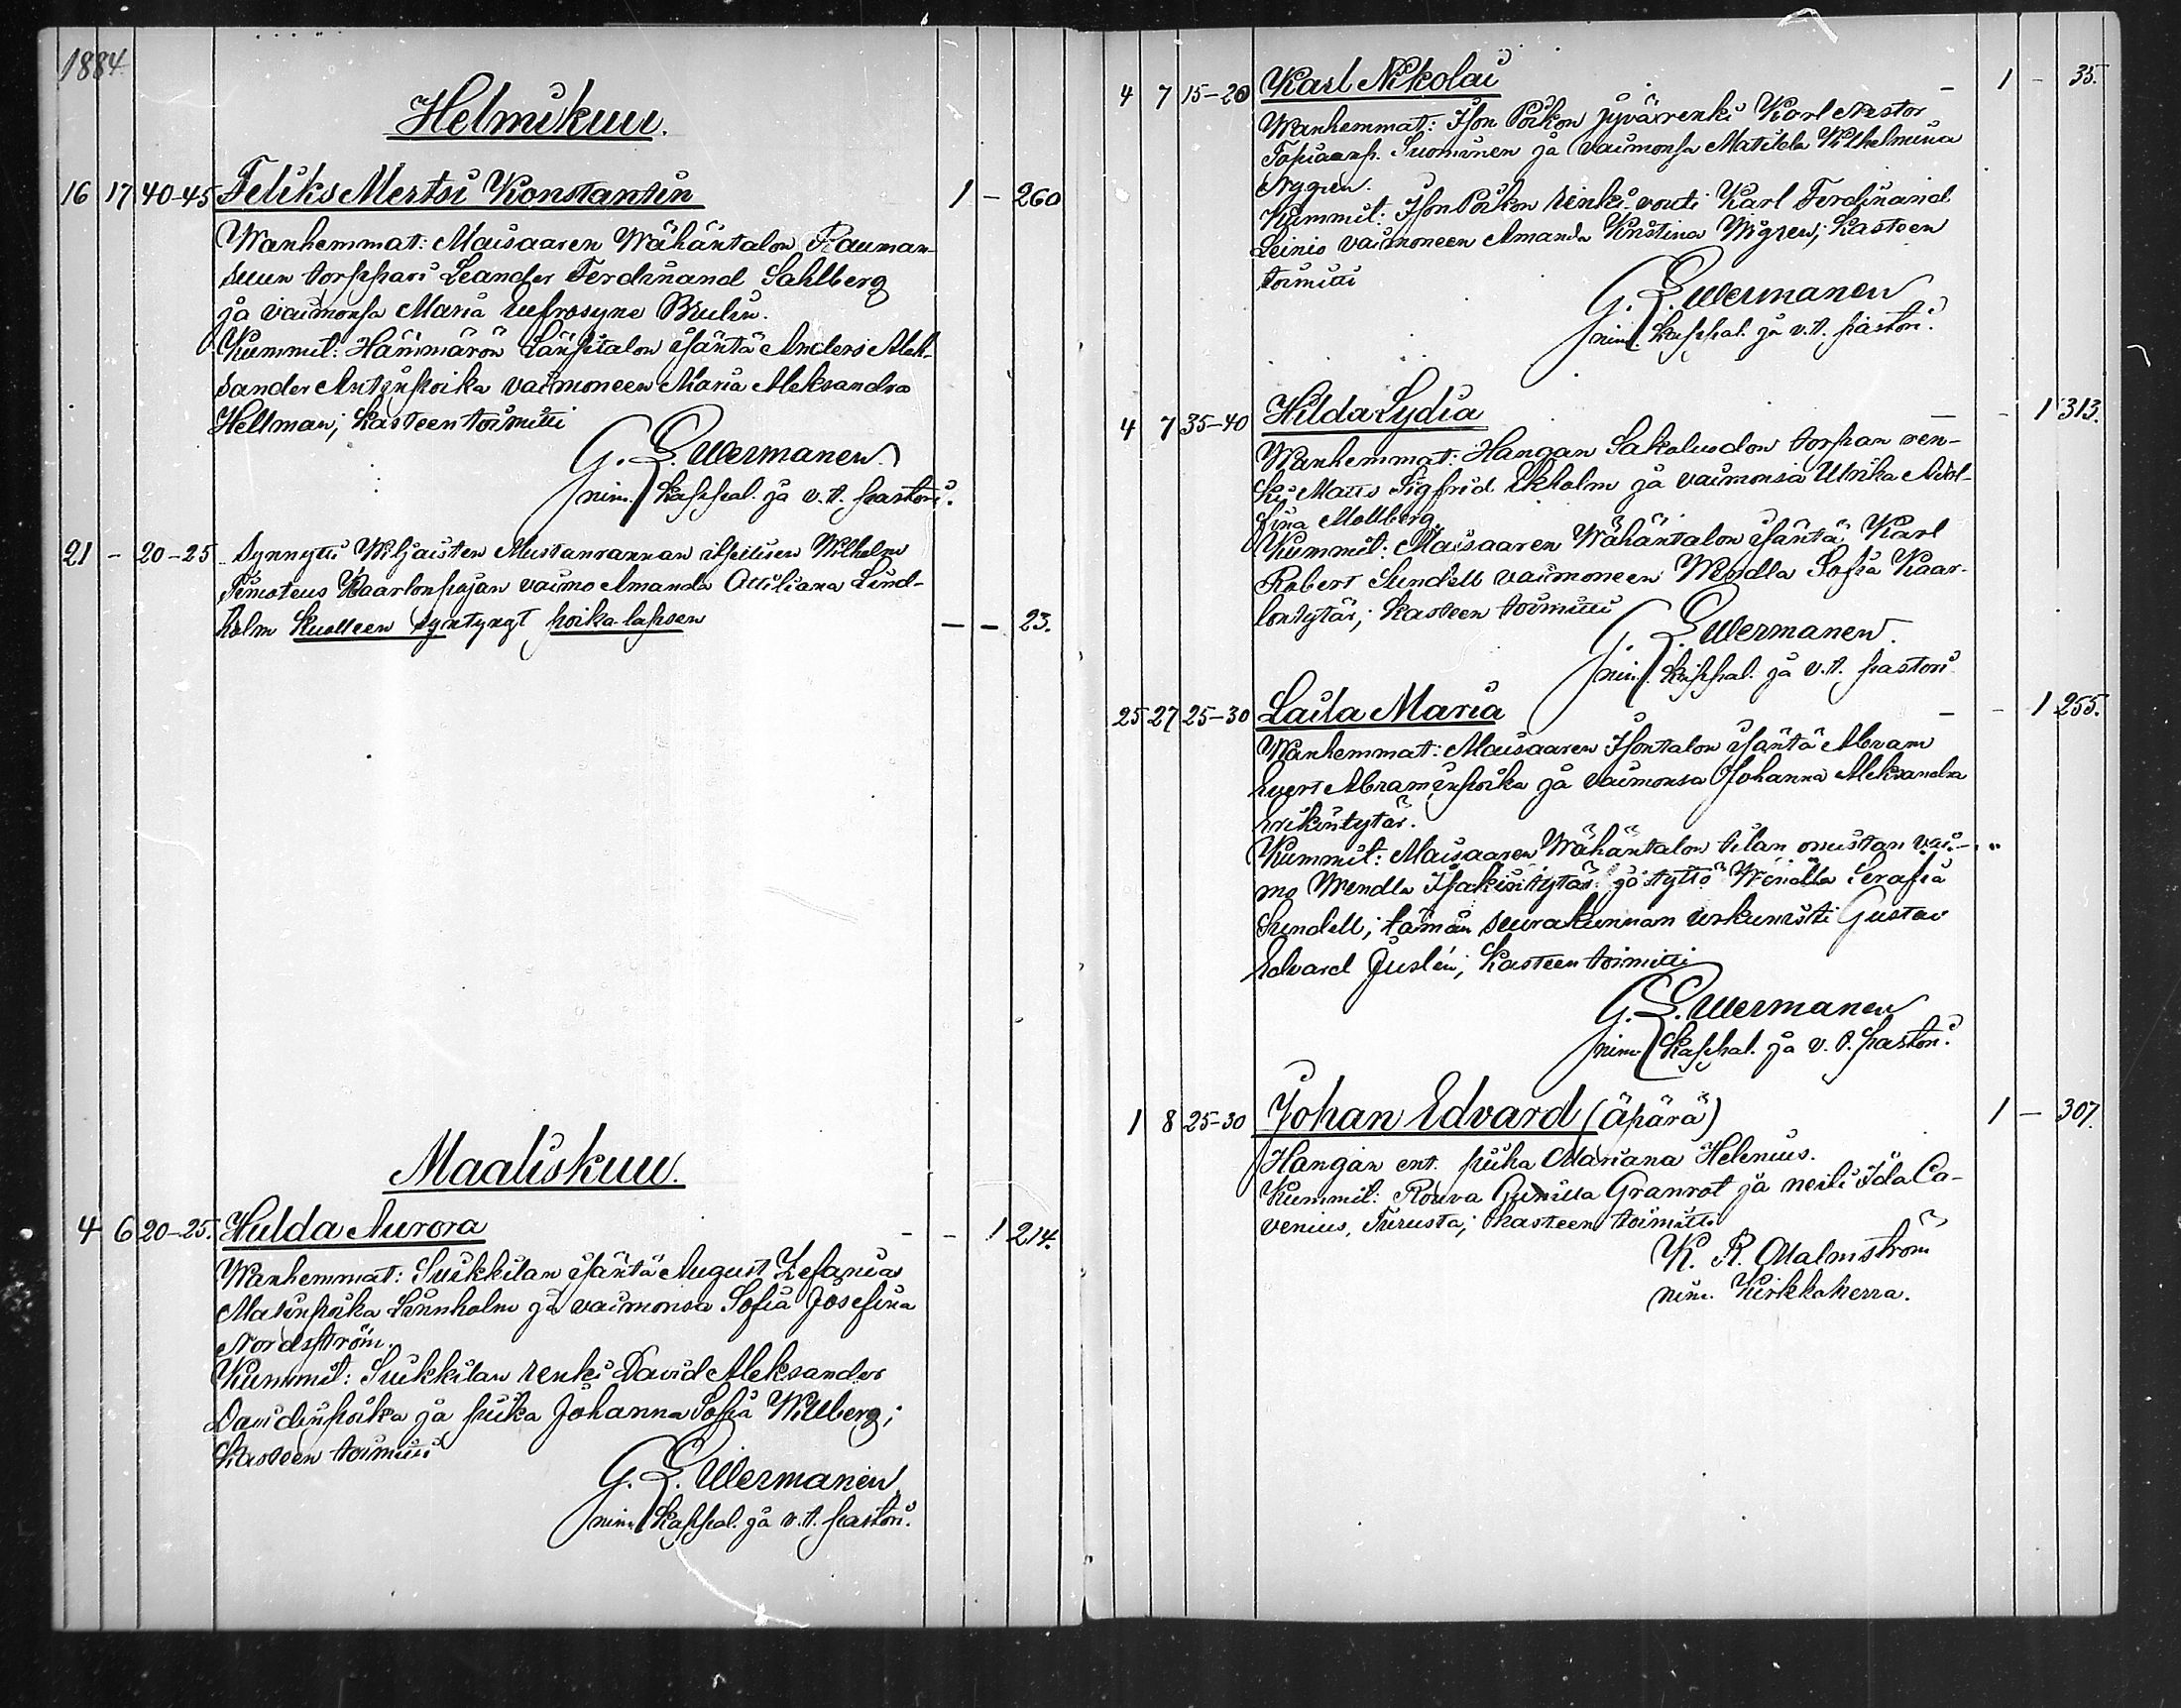 1884
Helmikuu.
16 17 40-45 Feliks Mertsi Konstantin 1 - 260
Wanhemmat: Maisaaren Wähäntalon Rauman-
suun torppari Leander Ferdinand Sahlberg
ja vaimonsa Maria Eufrosyne Brulin.
Kummit: Hämmärön Länsitalon isäntä Anders Alek-
sander Antinpoika vaimoneen Maria Aleksandra
Hellman; kasteen toimitti
G. L. Wermanen.
nim. kappal. ja v. t. pastori.
21 - 20-25 Synnytti Wiljaisten Mustanrannan itsellisen Wilhelm
Timoteus Kaarlonpojan vaimo Amanda Ottiliana Lind-
holm kuolleen syntynyt poika-lapsen - - 23.
Maaliskuu.
4 6 20-25. Hulda Aurora - - 1 214.
Wanhemmat: Suikkilan isäntä August Zefanias
Matinpoika Lennholm ja vaimonsa Sofia Josefina
Nordström.
Kummit: Suikkilan renki David Aleksander
Davidinpoika ja piika Johanna Sofia Willberg;
kasteen toimitti
G. L. Wermanen
nim. kappal. ja v. t. pastori.
4 7 15-20 Karl Nikolai - 1 - 35.
Wanhemmat: Ison Poikon jyvärenki Karl Nestor
Topiaanp. Suominen ja vaimonsa Matilda Wilhelmina
Nygren.
Kummit: Ison Poikon renki-vouti Karl Ferdinand
Leinio vaimoneen Amanda Kristina Wigren; kasteen
toimitti
G. L. Wermanen
nim. kappal. ja v. t. pastori.
4 7 35-40 Hilda Lydia - - 1 313.
Wanhemmat: Hangan Sakaluodon torpan ren-
ki Matts Sigfrid Ekholm ja vaimonsa Ulrika Adol-
fina Mollberg.
Kummit: Maisaaren Wähäntalon isäntä Karl
Robert Sundell vaimoneen Wendla Sofia Kaar-
lontytär; kasteen toimitti
G. L. Wermanen.
nim. kappal. ja v. t. pastori
25 27 25-30 Laila Maria - - 1 255.
Wanhemmat: Maisaaren Isontalon isäntä Abram
Evert Abraminpoika ja vaimonsa Johanna Aleksandra
Erikintytär.
Kummit: Maisaaren Wähäntalon tilan omistan vai-
mo Wendla Isakintytär ja tyttö Wendla Serafia
Sundell; tämän seurakunnan urkunisti Gustav
Edvard Juslén; kasteen toimitti
G. L. Wermanen
nim. kappal. ja v. t. pastori.
1 8 25-30 Johan Edvard (äpärä) 1 - 307.
Hangan ent. piika Mariana Helenius.
Kummit: Rouva Gunilla Granrot ja neiti Ida Ca-
venius, Turusta; kasteen toimitti
K. R. Malmström
nim. Kirkkoherra.